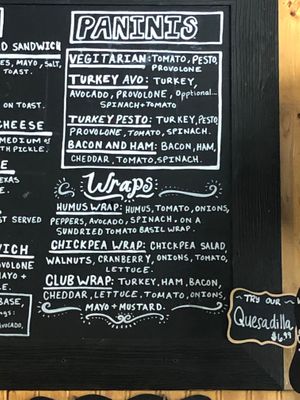 PANINIS
VEGITARIAN: TOMATO, PESTO,
PROVOLONE
TURKEY AVO: TURKEY,
AVOCADO, PROVOLONE, Opptional...
SPINACH + TOMATO
TURKEY PESTO: TURKEY, PESTO,
PROVOLONE, TOMATO, SPINACH.
BACON AND HAM: BACON, HAM,
CHEDDAR, TOMATO, SPINACH.
Wraps
HUMUS WRAP: HUMUS, TOMATO, ONIONS,
PEPPERS, AVOCADO, SPINACH. ON A
SUNDRIED TOMATO BASIL WRAP.
CHICKPEA WRAP: CHICKPEA SALAD
WALNUTS, CRANBERRY, ONIONS, TOMATO,
LETTUCE.
CLUB WRAP: TURKEY, HAM, BACON,
CHEDDAR, LETTUCE, TOMATO, ONIONS,
MAYO + MUSTARD.
SANDWICH
MAYO, SALT,
TOAST.
ON TOAST.
CHEESE
MEDIUM OF
PICKLE.
SERVED
PROVOLONE
MAYO +
BASE,
AVOCADO,
TRY OUR
Quesadilla
$6.99